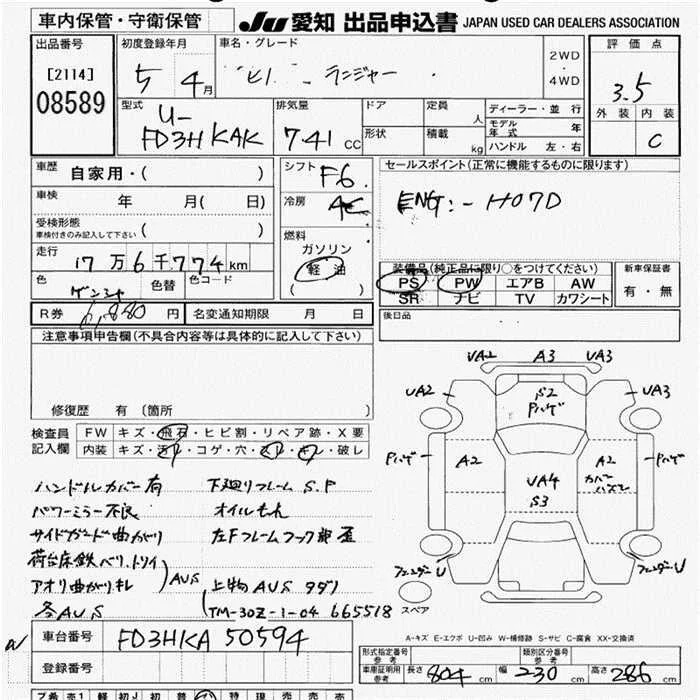 車内保管・守衛保管
JU 愛知 出品申込書 JAPAN USED CAR DEALERS ASSOCIATION
出品番号
[2114]
08589
初度登録年月
5 4月
車名・グレード
ヒノ レンジャー
2WD
・
4WD
評価点
3.5
外装 内装
C
型式
U-
FD3HKAK
排気量
7.41 CC
ドア
形状
定員 人
積載 kg
ディーラー・並行
モデル年式 年
ハンドル 左・右
車歴
自家用・( )
車検 年 月( 日)
受検形態
車検付きのみ記入して下さい ( )
走行
17万6千774km
色 色替 色コード
シフト
F6
冷房
燃料
ガソリン
軽油
( )
セールスポイント(正常に機能するものに限ります)
ENG:-H07D
装備品(純正品に限り○をつけてください)
PS PW エアB AW
SR ナビ TV カワシート
新車保証書
有・無
R券 円
名変通知期限 月 日
後日品
注意事項申告欄(不具合内容等は具体的に記入して下さい)
修復歴 有 (箇所 )
検査員
記入欄
FW キズ・飛石・ヒビ割・リペア跡・X要
内装 キズ・汚レ・コゲ・穴・スレ・キレ・破レ
ハンドルカバー有 下廻りフレームS.P
パワーミラー不良 オイルもれ
サイドガード曲がり 左Fフレームフック部歪
荷台床鉄ベリ、トリイ
アオリ曲がりキレ
各AUS
AUS
上物AUSタダノ
(TM-30Z-1-04 665518
UA2 A3 UA3
UA2 UA3
S2
A2 A2
UA4
S3
スペア
A-キズ E-エクボ U-凹み W-補修跡 S-サビ C-腐食 XX-交換済
車台番号 FD3HKA50594
登録番号
形式指定番号 参考
類別区分番号 参考
車庫証明用 参考
長さ 804 cm 幅 230 cm 高さ 286 cm